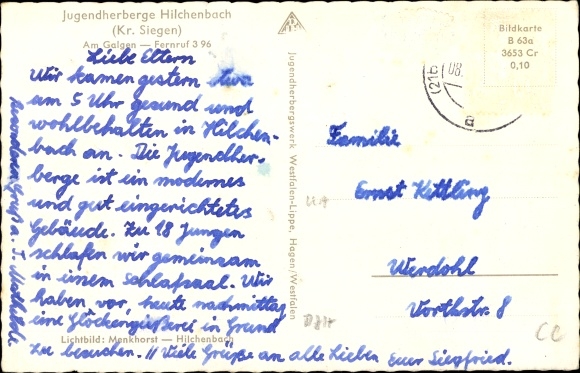 Jugendherberge Hilchenbach
(Kr. Siegen)
Am Galgen — Fernruf 3 96
Liebe Eltern
Wir kamen gestern
am 5 Uhr gesund und
wohlbehalten in Hilchen-
bach an. Die Jugendher-
berge ist ein modernes
und gut eingerichtetes
Gebäude. Zu 18 Jungen
schlafen wir gemeinsam
in einem Schlafsaal. Wir
haben vor, heute nachmittag
eine Glockengießerei in Grund
zu besuchen. // Viele Grüße an alle Lieben Euer Siegfried.
Lichtbild: Menkhorst — Hilchenbach
Jugendherbergswerk Westfalen-Lippe, Hagen/Westfalen
Bildkarte
B 63a
3653 Cr
0,10
(21b)
08.
a
Familie
Ernst Kettling
Werdohl
Vorthstr. 8
CC